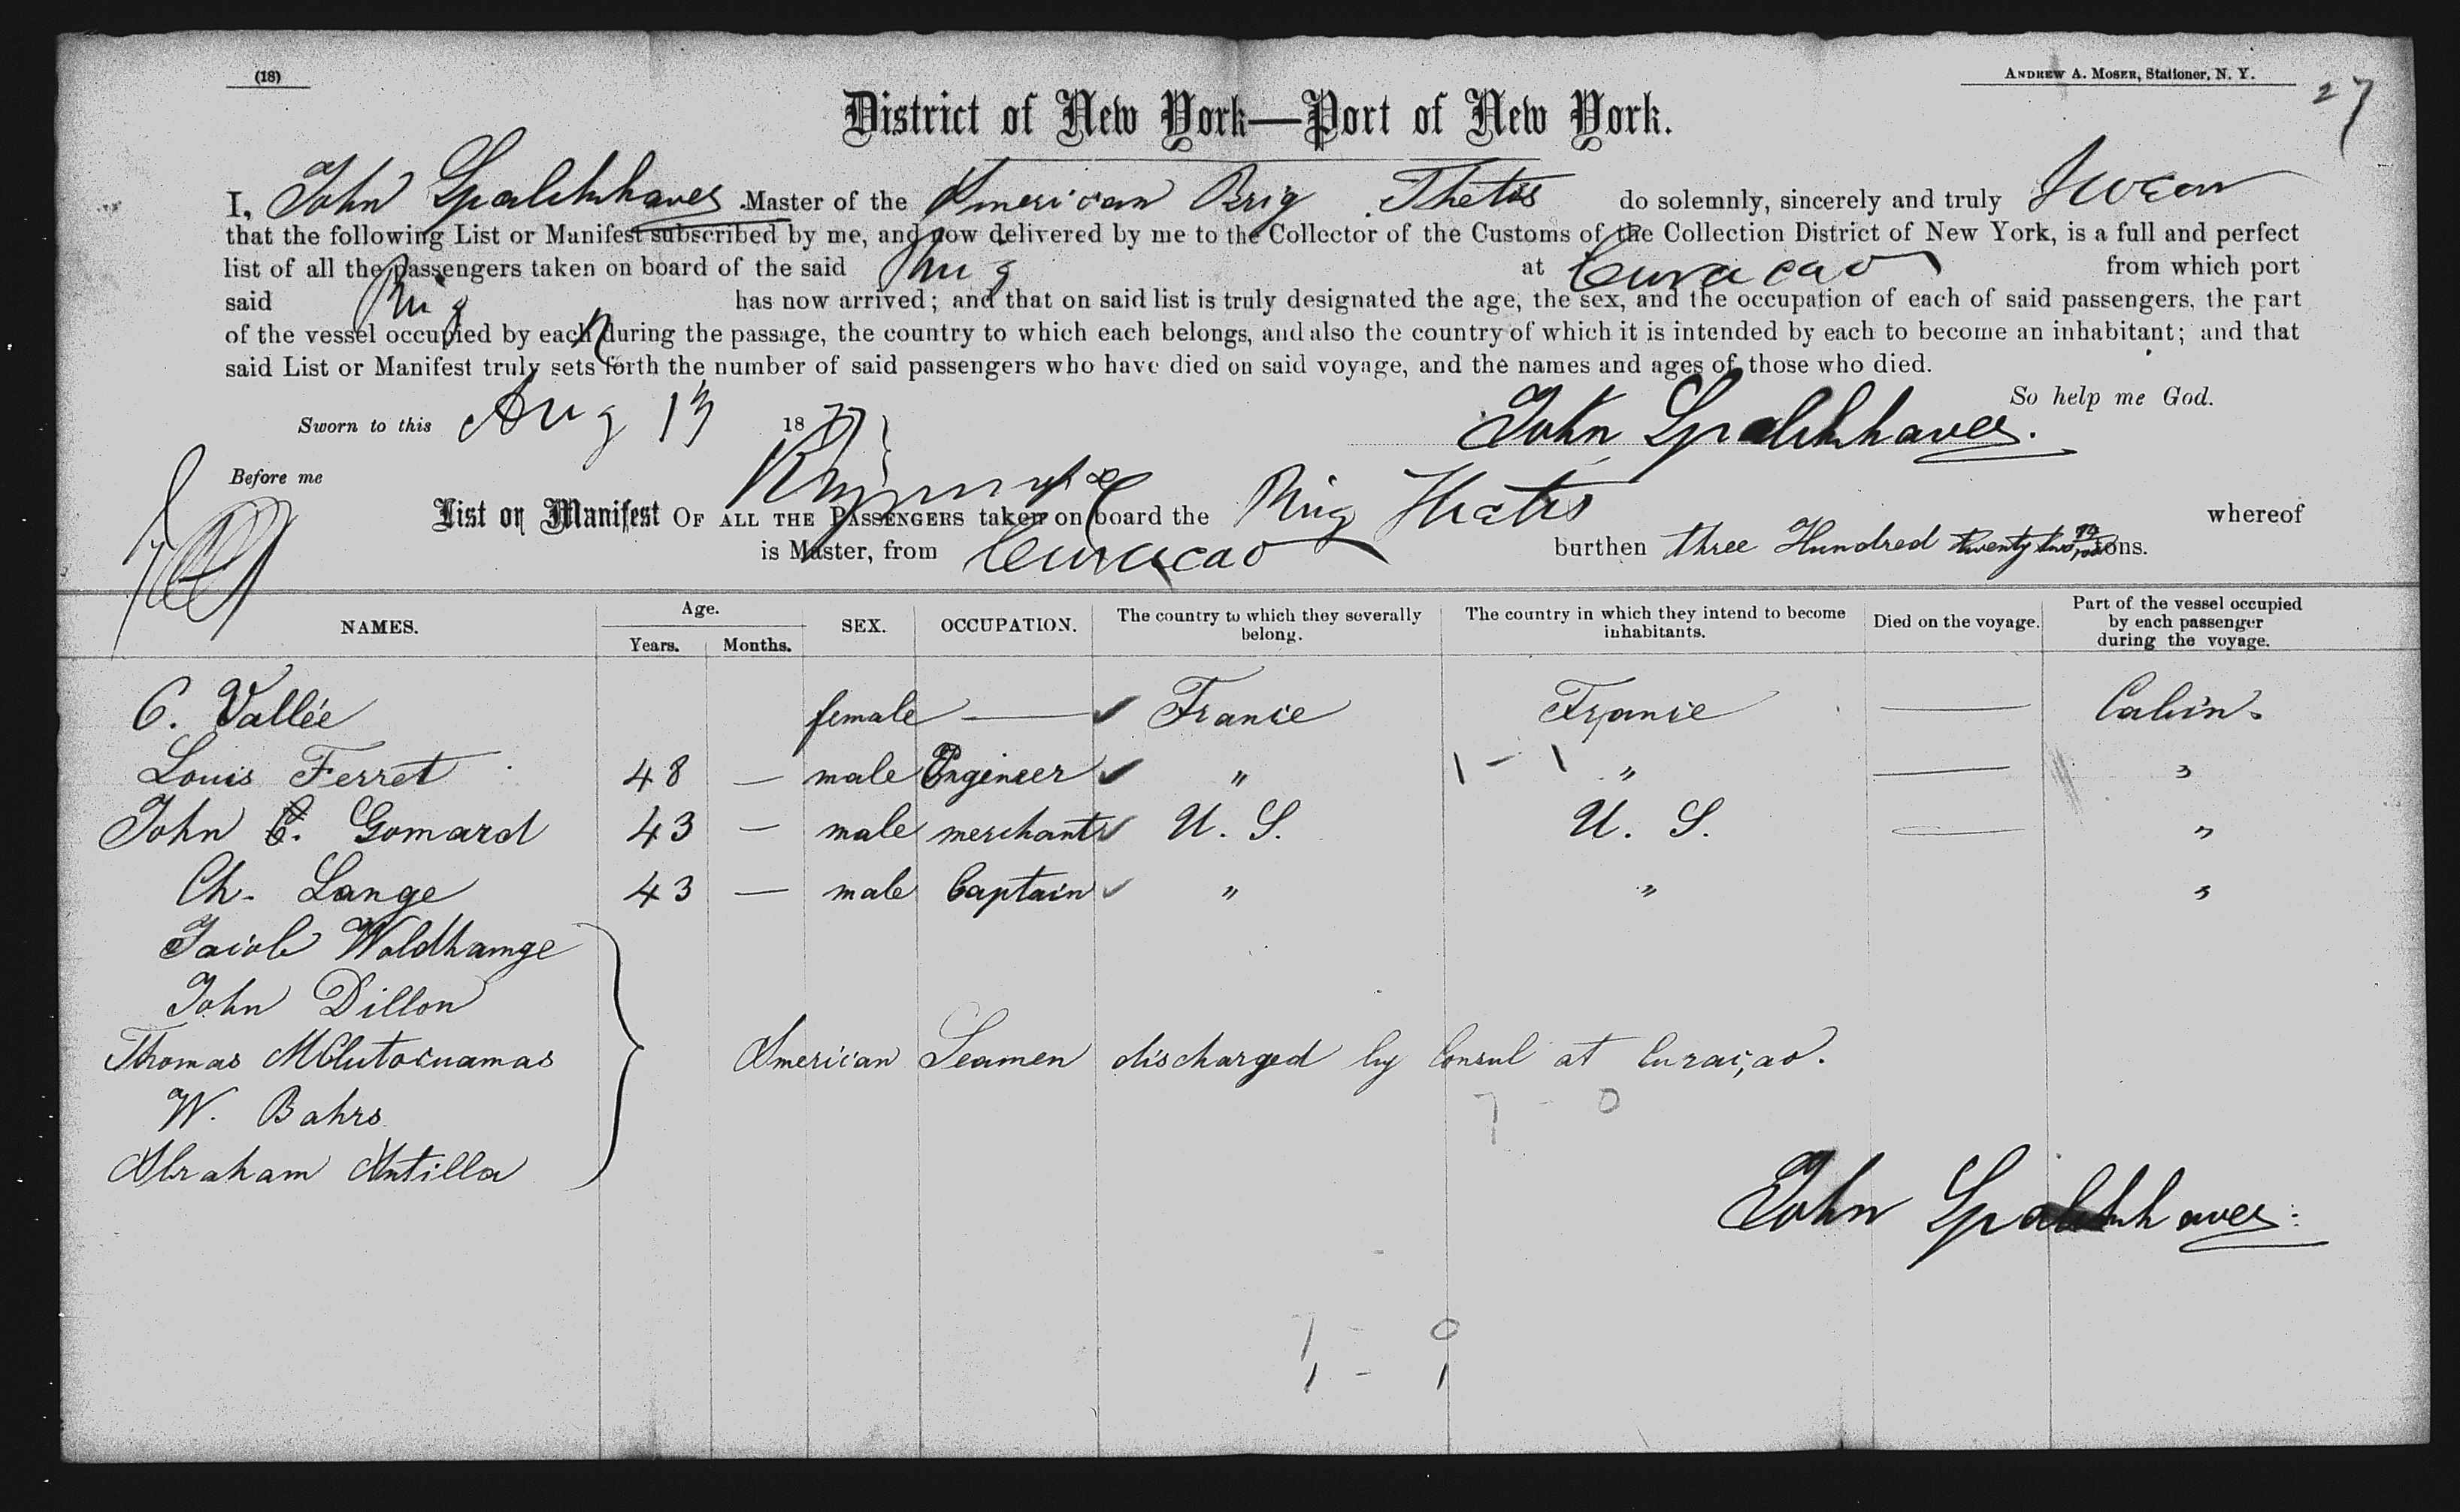 (18)
ANDREW A. MOSER, Stationer, N. Y.
27
District of New York—Port of New York.
I, John Spalckhaver Master of the American Brig Thetis do solemnly, sincerely and truly Swear
that the following List or Manifest subscribed by me, and now delivered by me to the Collector of the Customs of the Collection District of New York, is a full and perfect
list of all the passengers taken on board of the said Brig at Curacao from which port
said Brig has now arrived; and that on said list is truly designated the age, the sex, and the occupation of each of said passengers, the part
of the vessel occupied by each during the passage, the country to which each belongs, and also the country of which it is intended by each to become an inhabitant; and that
said List or Manifest truly sets forth the number of said passengers who have died on said voyage, and the names and ages of those who died.
So help me God.
Sworn to this Aug 13 1877 John Spalckhaver.
Before me
List or Manifest OF ALL THE PASSENGERS taken on board the Brig Thetis whereof
is Master, from Curacao burthen three Hundred twenty two tons.
NAMES. Age. Years. Months. SEX. OCCUPATION. The country to which they severally belong. The country in which they intend to become inhabitants. Died on the voyage. Part of the vessel occupied by each passenger during the voyage.
C. Vallée female — ✓ France France — Cabin.
Louis Ferret 48 — male Engineer ✓ " 1 - 1 " — "
John C. Gomard 43 — male merchant ✓ U. S. U. S. — "
Ch. Lange 43 — male Captain ✓ " " "
Jacob Woldhamge
John Dillon
Thomas
American Seamen discharged by Consul at Curaçao.
W. Bahrs
7 - 0
Abraham Antilla
John Spalckhaver.
7 - 0
1 - 1